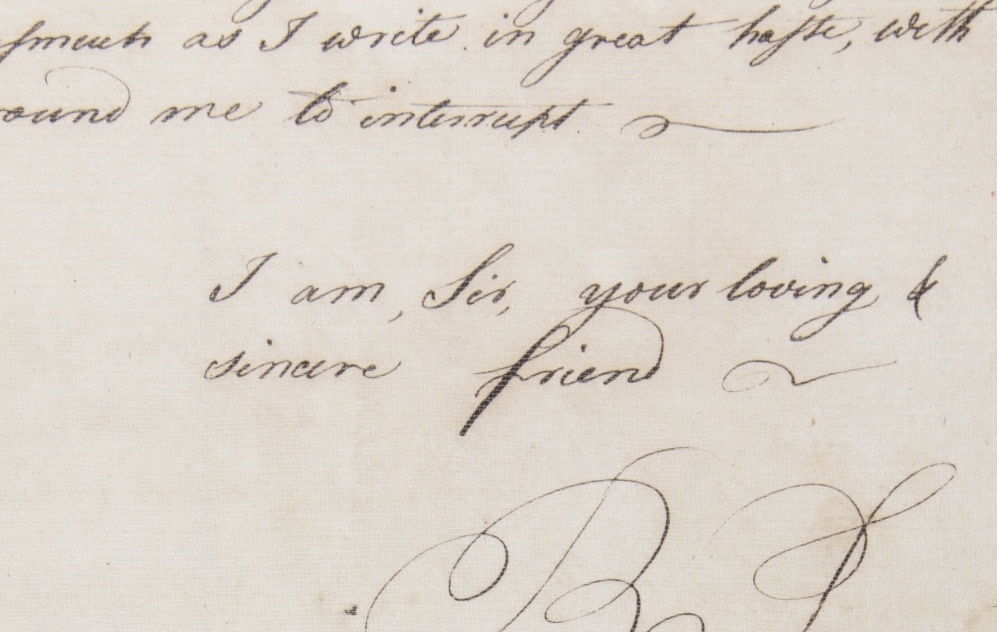 as I write in great haste, with
round me to interrupt.
I am, Sir, your loving &
sincere friend
B